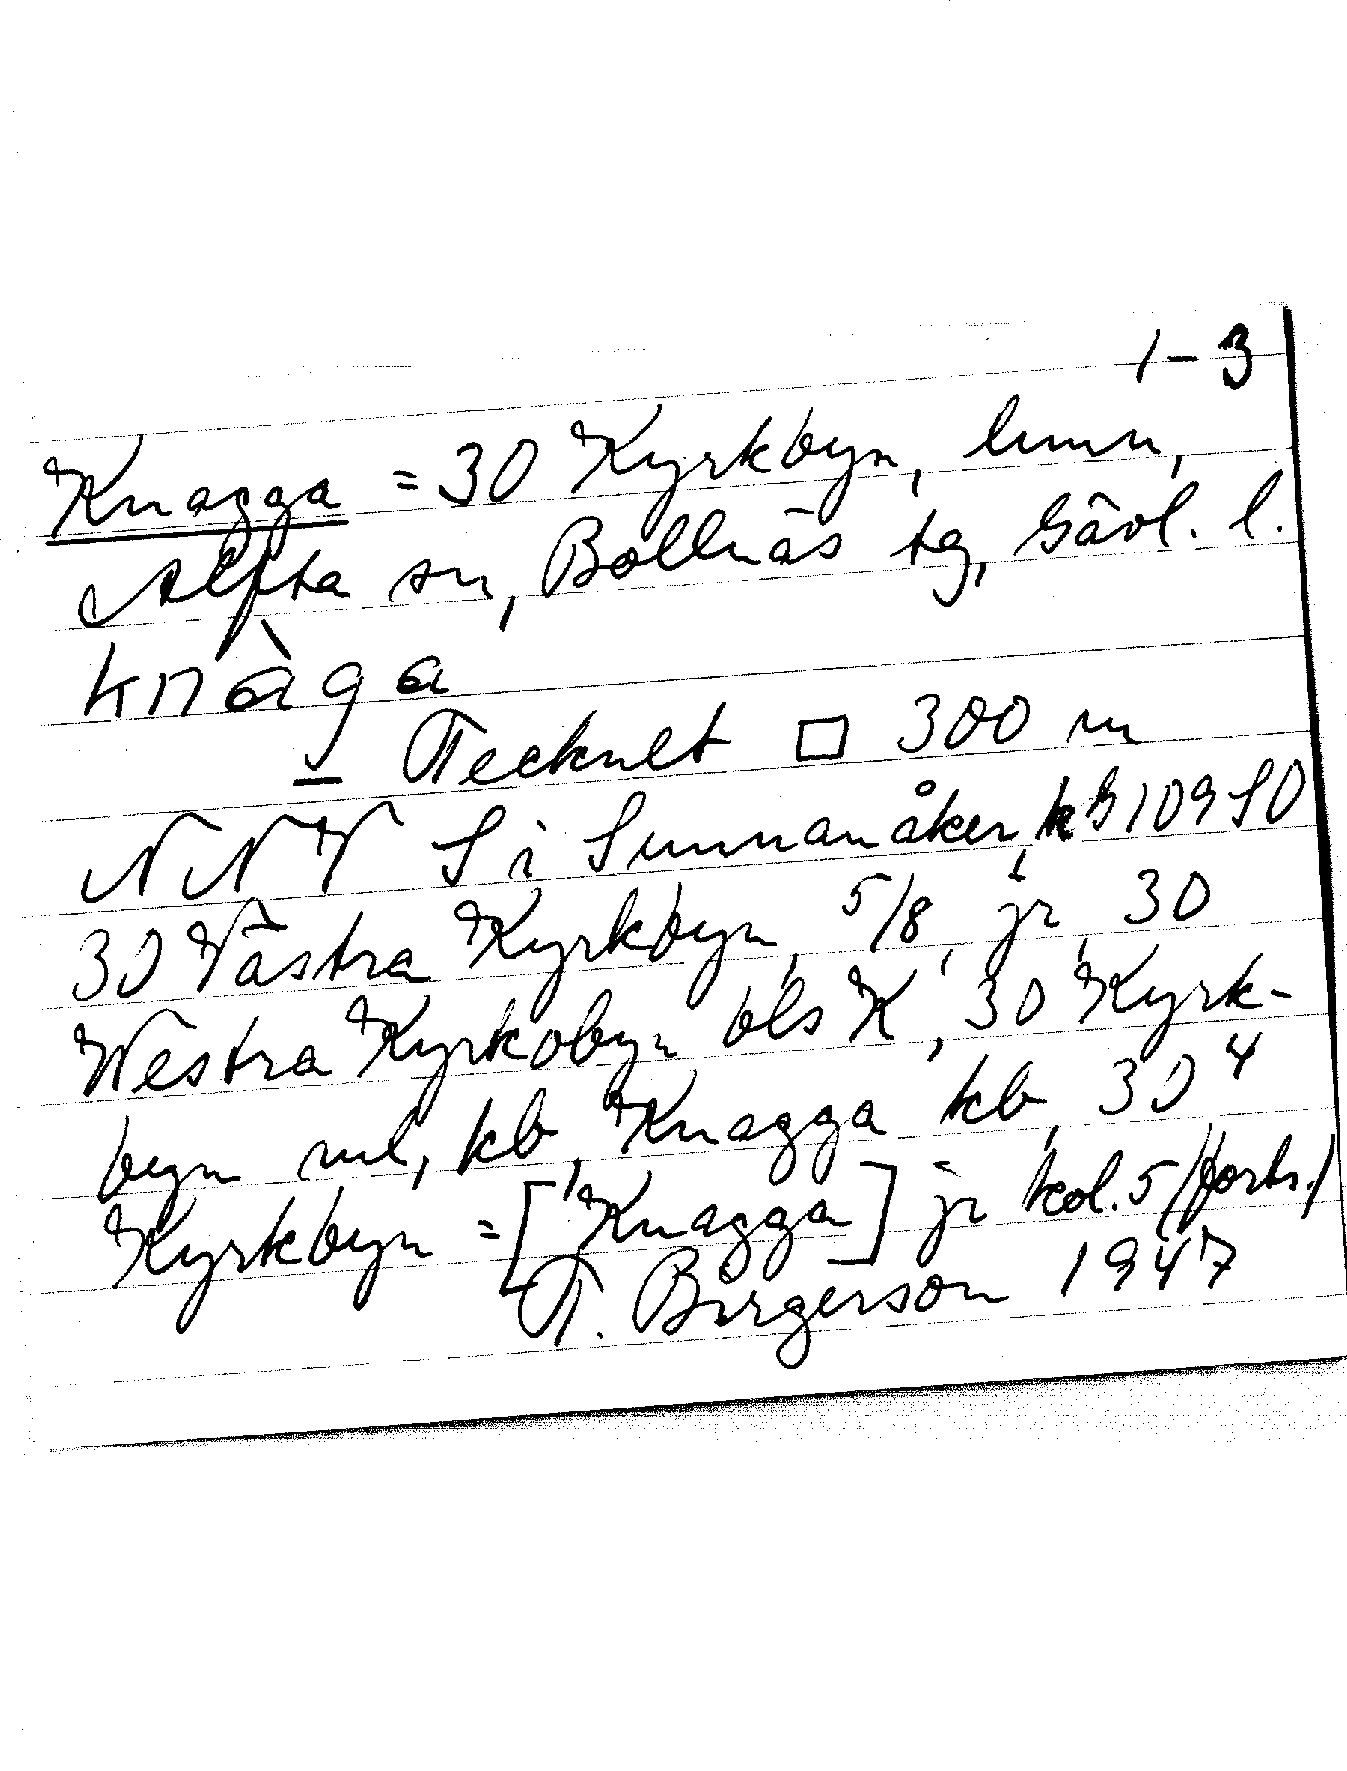 1-3
Knagga = 30 Kyrkbyn, hmn,
Alfta sn, Bollnäs tg, Gävl. l.
knàga
Tecknet □ 300 m
NNV S i Sunnanåker, kb 109 SO
30 Västra Kyrkbyn, 5/8, jr, 30
Westra Kyrkobyn bls K, 30 Kyrk-
byn ml, kb, Knagga kb, 30 4
Kyrkbyn = [Knagga] jr kol. 5 (forts.)
T. Birgerson 1947